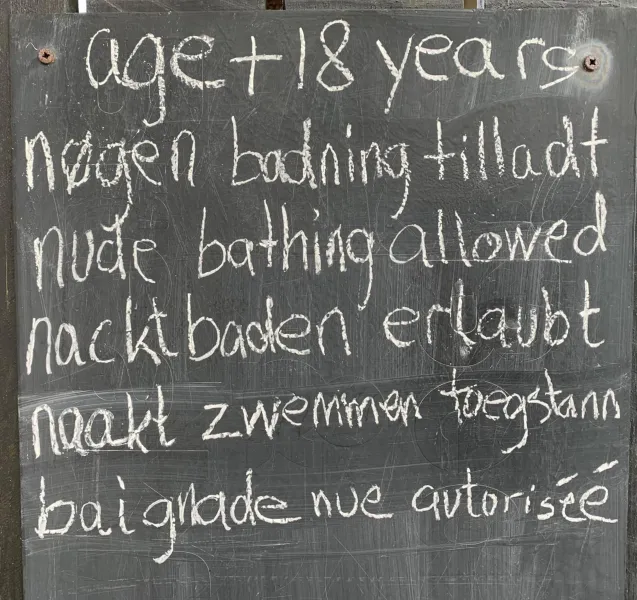 age +18 years
nøgen badning tilladt
nude bathing allowed
nacktbaden erlaubt
naakt zwemmen toegstann
baignade nue autoriséé